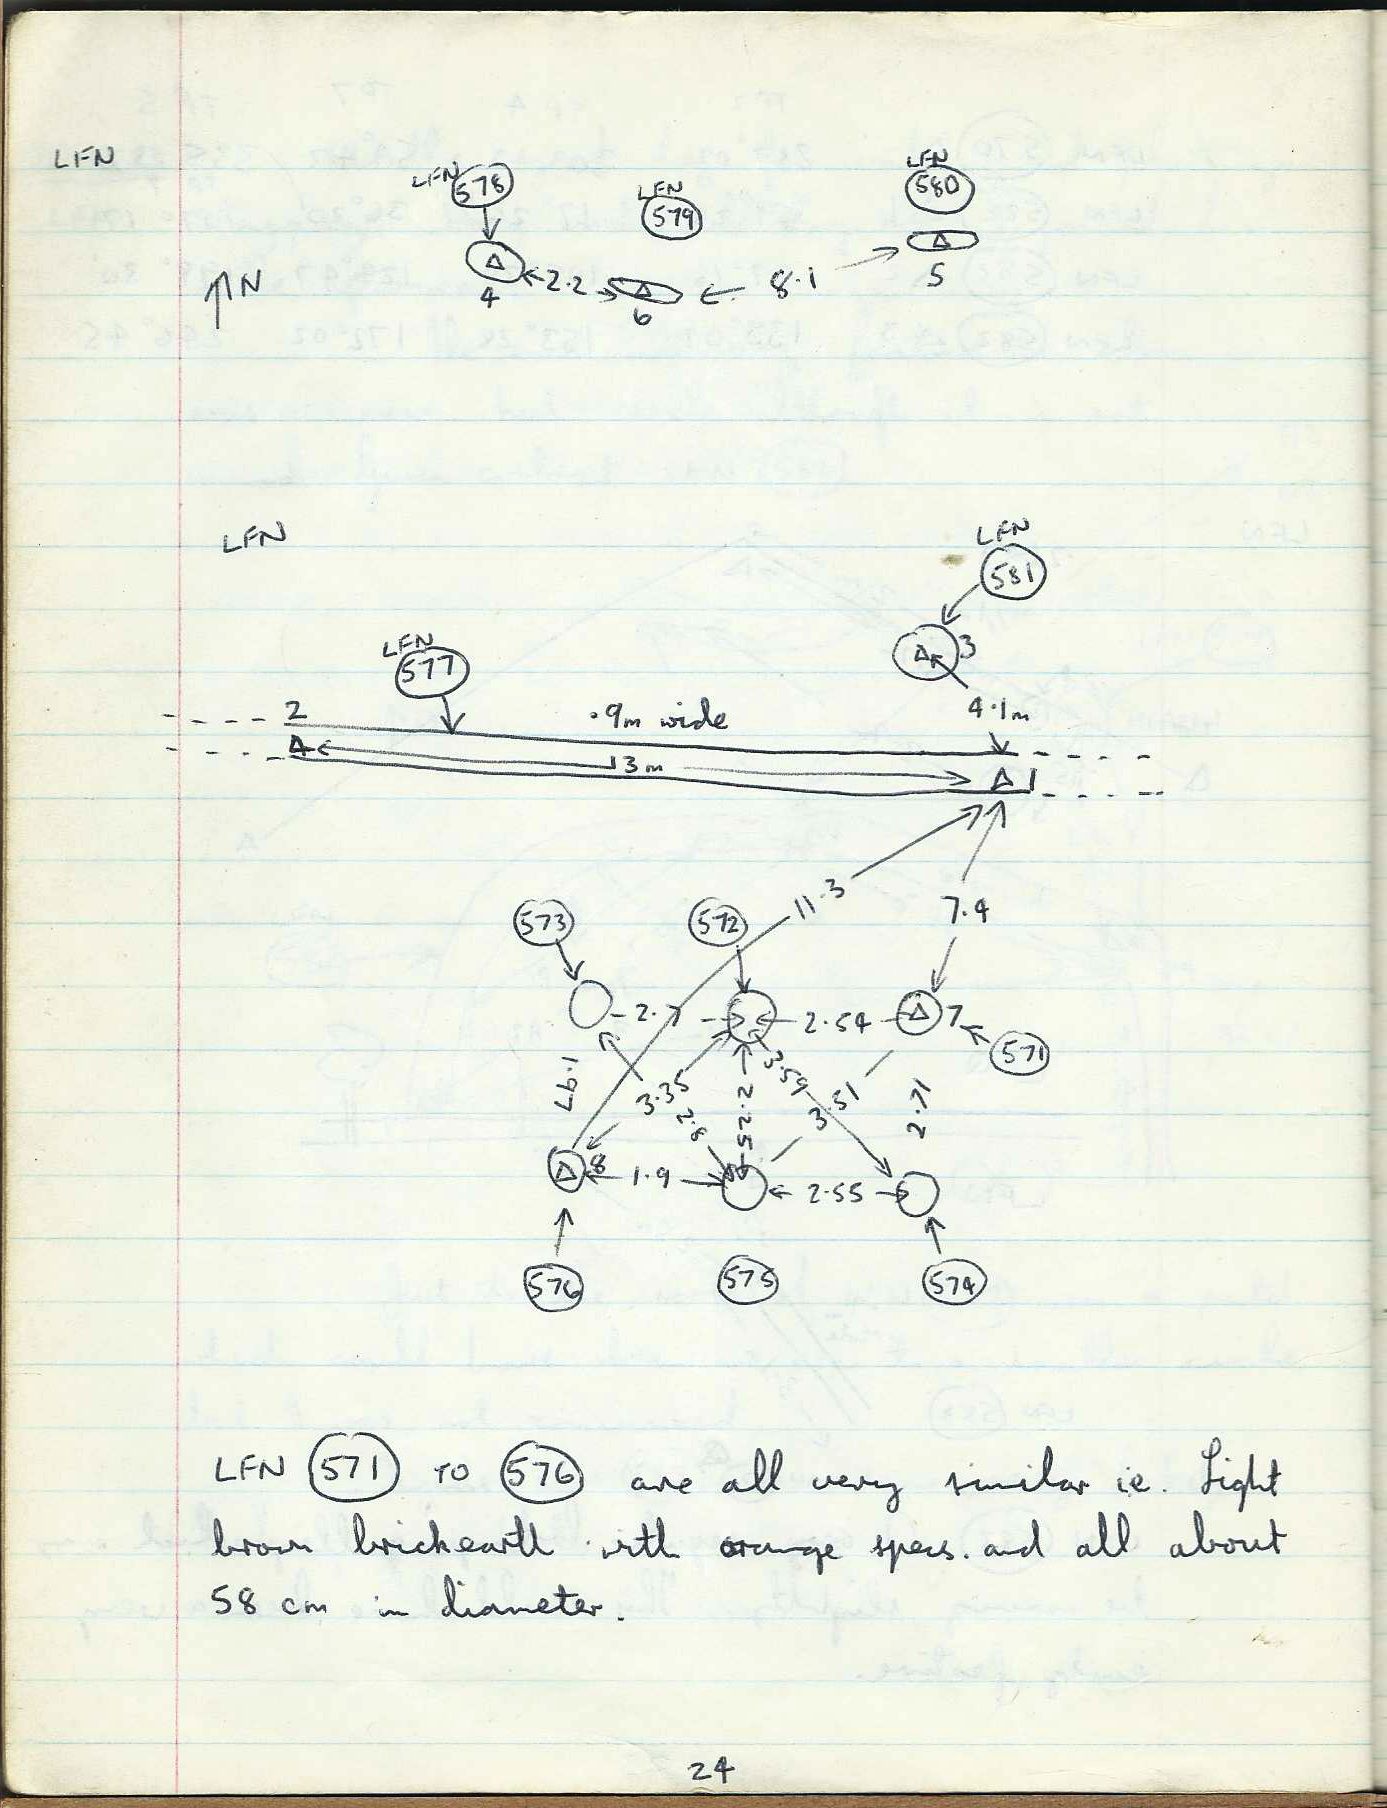 LFN
LFN 578
LFN 579
LFN 580
N
4
2.2
6
8.1
5
LFN
LFN 581
3
4.1m
LFN 577
2
.9m wide
13m
1
11.3
7.4
573
572
2.7
2.54
7
571
1.97
3.35
2.8
2.25
3.59
3.51
2.71
8
1.9
2.55
576
575
574
LFN 571 TO 576 are all very similar ie. Light
brown brickearth with orange specs. and all about
58 cm in diameter.
24